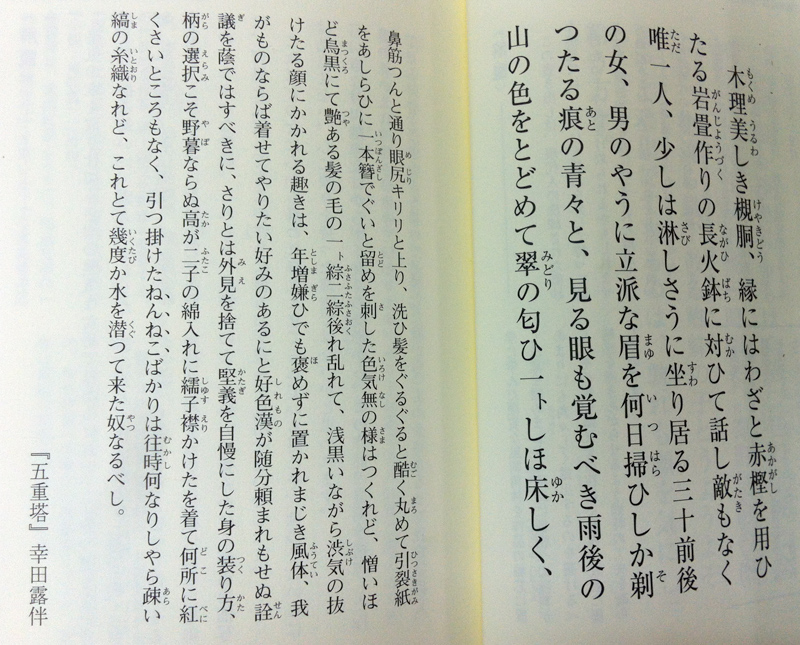 木理美しき槻胴、縁にはわざと赤樫を用ひ
たる岩畳作りの長火鉢に対ひて話し敵もなく
唯一人、少しは淋しさうに坐り居る三十前後
の女、男のやうに立派な眉を何日掃ひしか剃
つたる痕の青々と、見る眼も覚むべき雨後の
山の色をとどめて翠の匂ひ一トしほ床しく、
鼻筋つんと通り眼尻キリリと上り、洗ひ髪をぐるぐると酷く丸めて引裂紙
をあしらひに一本簪でぐいと留めを刺した色気無の様はつくれど、憎いほ
ど烏黒にて艶ある髪の毛の一ト綜二綜後れ乱れて、浅黒いながら渋気の抜
けたる顔にかかれる趣きは、年増嫌ひでも褒めずに置かれまじき風体、我
がものならば着せてやりたい好みのあるにと好色漢が随分頼まれもせぬ詮
議を蔭ではすべきに、さりとは外見を捨てて堅義を自慢にした身の装り方、
柄の選択こそ野暮ならぬ高が二子の綿入れに繻子襟かけたを着て何所に紅
くさいところもなく、引つ掛けたねんねこばかりは往時何なりしやら疎い
縞の糸織なれど、これとて幾度か水を潜つて来た奴なるべし。
『五重塔』幸田露伴